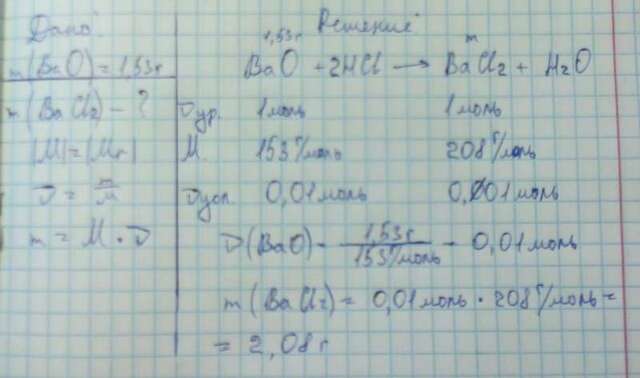 Дано:
m(BaO) = 1,53г
m(BaCl2) - ?
|M| = |Mr|
ν = m/M
m = M · ν
Решение:
1,53г m
BaO + 2HCl → BaCl2 + H2O
νур. 1моль 1моль
M. 153г/моль 208г/моль
νусл. 0,01моль 0,001моль
ν(BaO) - 1,53г/153г/моль - 0,01моль
m(BaCl2) = 0,01моль · 208г/моль =
= 2,08г